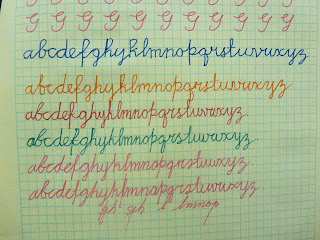 G G G G G G G G G
G G G G G G G G G
abcdefghyklmnopqrstuvwxyz
abcdefghyklmnopqrstuvwxyz
abcdefghyklmnopqrstuvwxyz.
abcdefghyklmnopqrstuvwxyz.
abcdefghyklmnopqrstuvwxyz.
abcdefghyklmnopqrstuvwxyz.
l lmnop